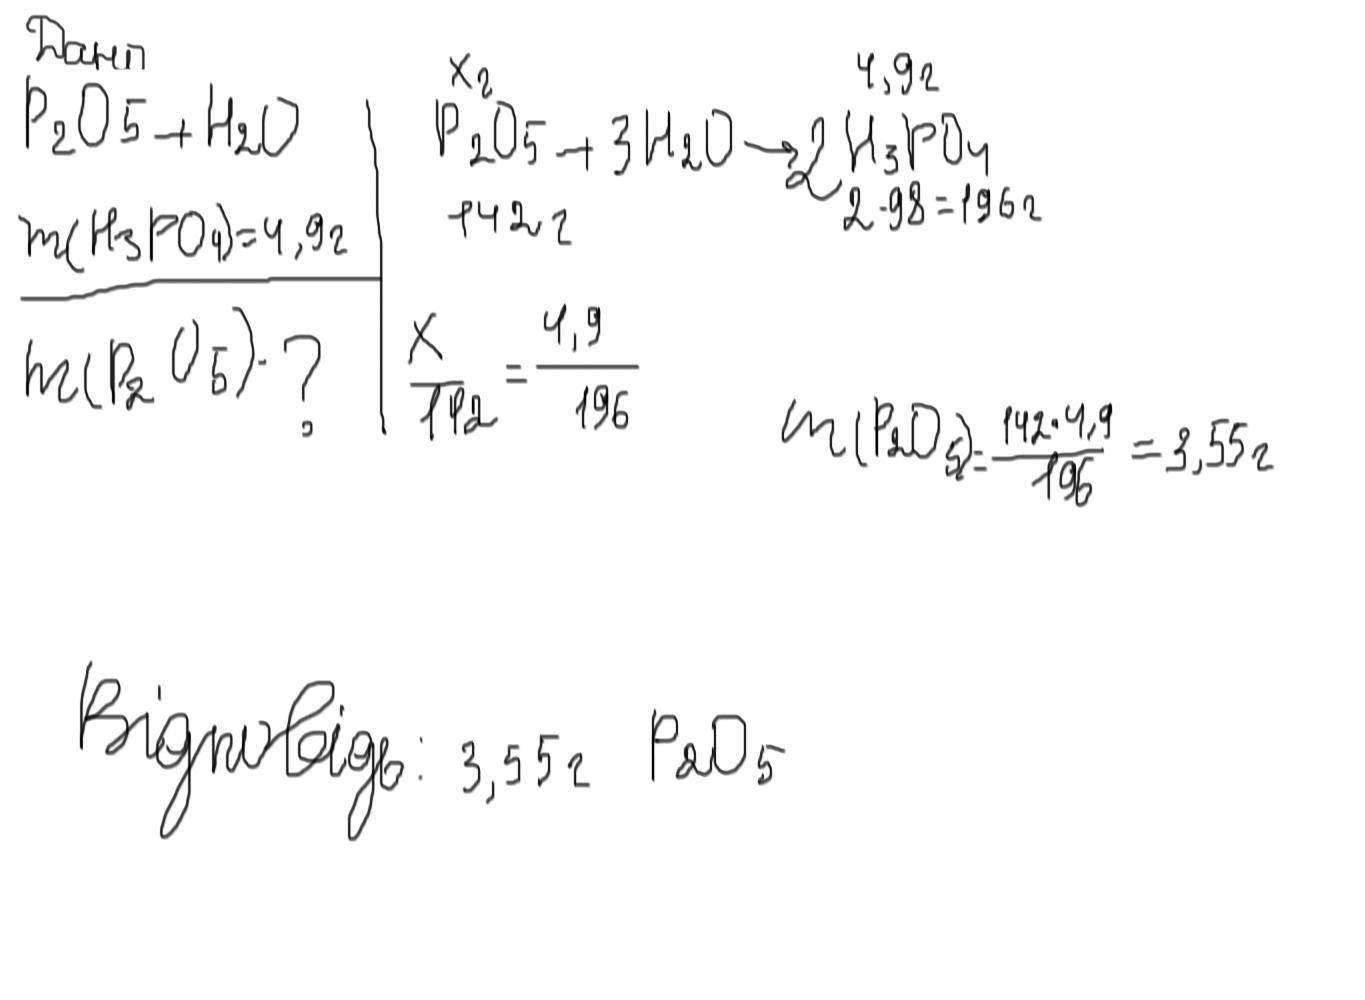 Дано
P2O5 + H2O
m(H3PO4)=4,9г
m(P2O5)-?
xг 4,9г
P2O5 + 3H2O → 2H3PO4
142г 2·98=196г
x/142 = 4,9/196
m(P2O5)= 142·4,9/196 = 3,55г
Відповідь: 3,55г P2O5